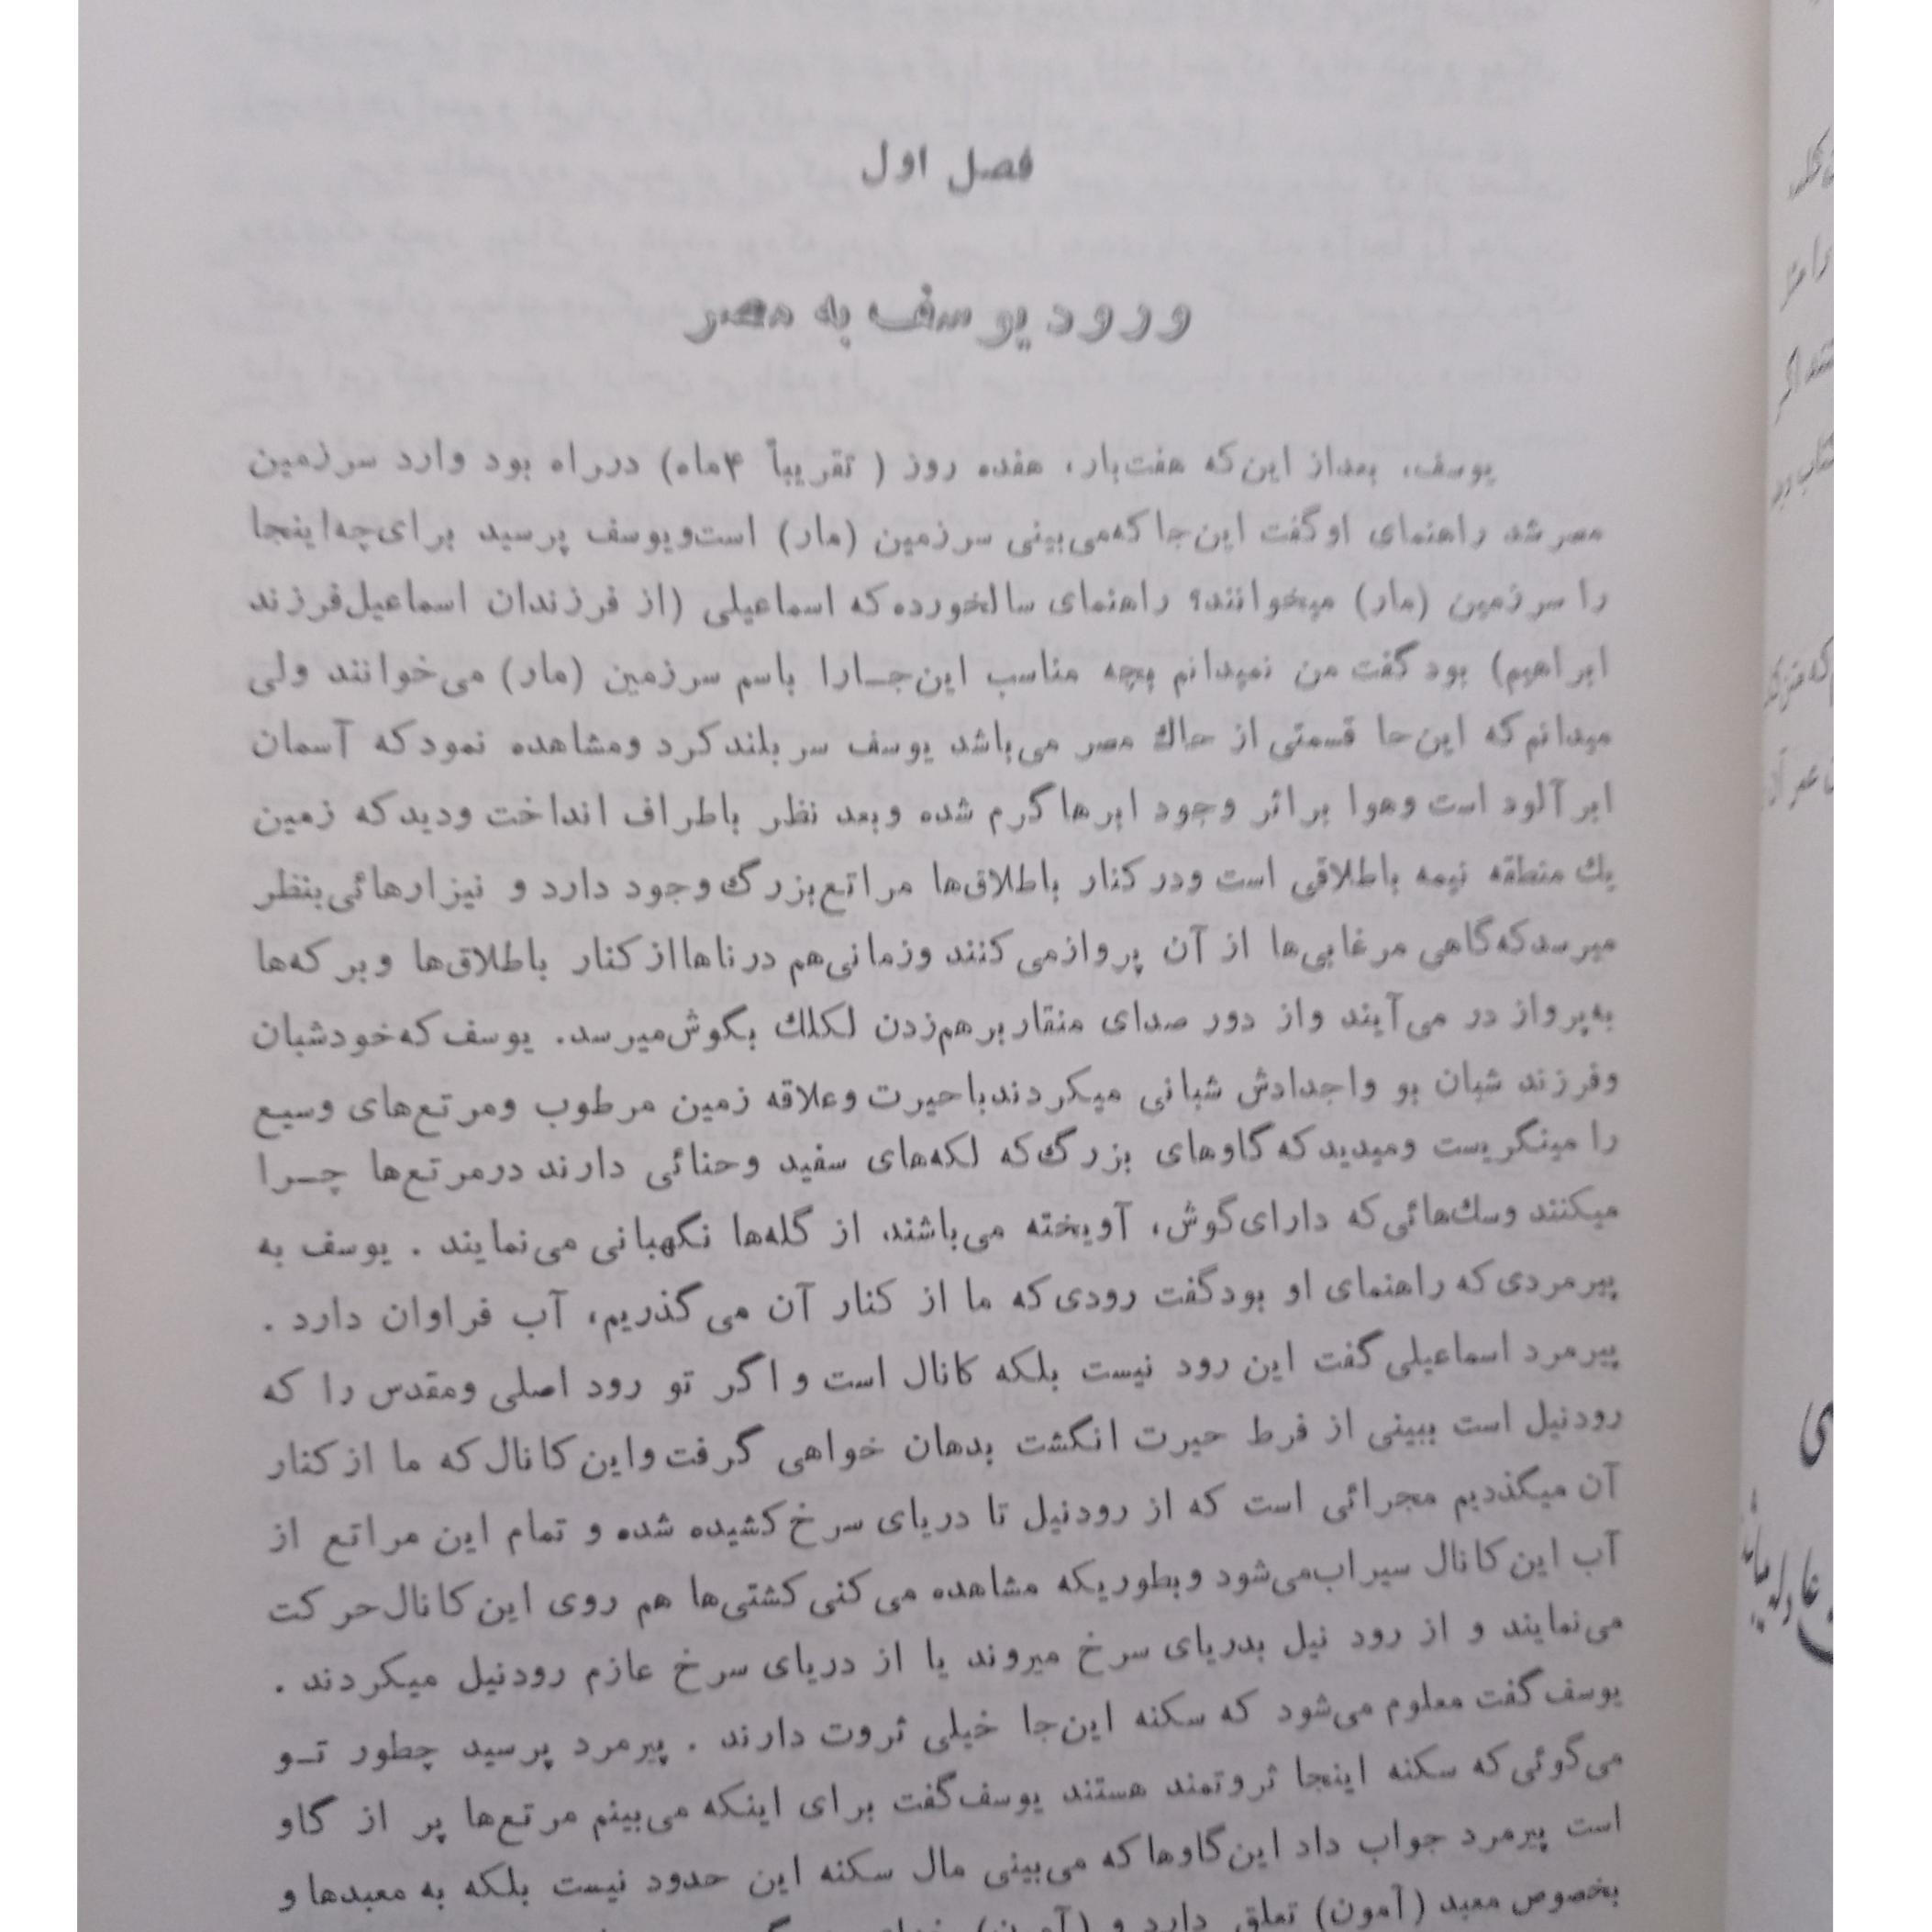 فصل اول
ورود یوسف به مصر
یوسف، بعداز این‌که هفت‌بار، هفده روز ( تقریباً ۴ماه) درراه بود وارد سرزمین
مصر شد راهنمای او گفت این‌جا که‌می‌بینی سرزمین (مار) است‌و‌یوسف پرسید برای‌چه‌اینجا
را سرزمین (مار) میخوانند؟ راهنمای سالخورده که اسماعیلی (از فرزندان اسماعیل‌فرزند
ابراهیم) بود گفت من نمیدانم بچه مناسب این‌جـارا باسم سرزمین (مار) می‌خوانند ولی
میدانم که این‌حا قسمتی از حاك مصر می‌باشد یوسف سر بلند کرد ومشاهده نمود که آسمان
ابر آلود است وهوا براثر وجود ابرها گرم شده وبعد نظر باطراف انداخت ودید که زمین
یك منطقه نیمه باطلاقی است ودر کنار باطلاق‌ها مراتع‌بزرگ وجود دارد و نیزارهائی‌بنظر
میرسد که گاهی مرغابی‌ها از آن پروازمی‌کنند وزمانی‌هم درناها از کنار باطلاق‌ها وبرکه‌ها
به‌پرواز در می‌آیند واز دور صدای منقار برهم‌زدن لکلك بگوش‌میرسد. یوسف که خودشبان
وفرزند شبان بو واجدادش شبانی میکردند باحیرت وعلاقه زمین مرطوب ومرتع‌های وسیع
را مینگریست ومیدید که گاوهای بزرگ که لکه‌های سفید وحنائی دارند درمرتع‌ها چـرا
میکنند وسك‌هائی که دارای گوش، آویخته می‌باشند، از گله‌ها نگهبانی می‌نمایند . یوسف به
پیرمردی که راهنمای او بود گفت رودی که ما از کنار آن می‌گذریم، آب فراوان دارد .
پیرمرد اسماعیلی گفت این رود نیست بلکه کانال است و اگر تو رود اصلی ومقدس را که
رودنیل است ببینی از فرط حیرت انگشت بدهان خواهی گرفت و این کانال که ما از کنار
آن میگذدیم مجرائی است که از رودنیل تا دریای سرخ کشیده شده و تمام این مراتع از
آب این کانال سیراب‌می‌شود وبطوریکه مشاهده می‌کنی کشتی‌ها هم روی این کانال حرکت
می‌نمایند و از رود نیل بدریای سرخ میروند یا از دریای سرخ عازم رودنیل میکردند .
یوسف گفت معلوم می‌شود که سکنه این‌جا خیلی ثروت دارند . پیرمرد پرسید چطور تـو
می‌گوئی که سکنه اینجا ثروتمند هستند یوسف گفت برای اینکه می‌بینم مرتع‌ها پر از گاو
است پیرمرد جواب داد این گاوها که می‌بینی مال سکنه این حدود نیست بلکه به معبدها و
بخصوص معبد (آمون) تعلق دارد و (آمون)